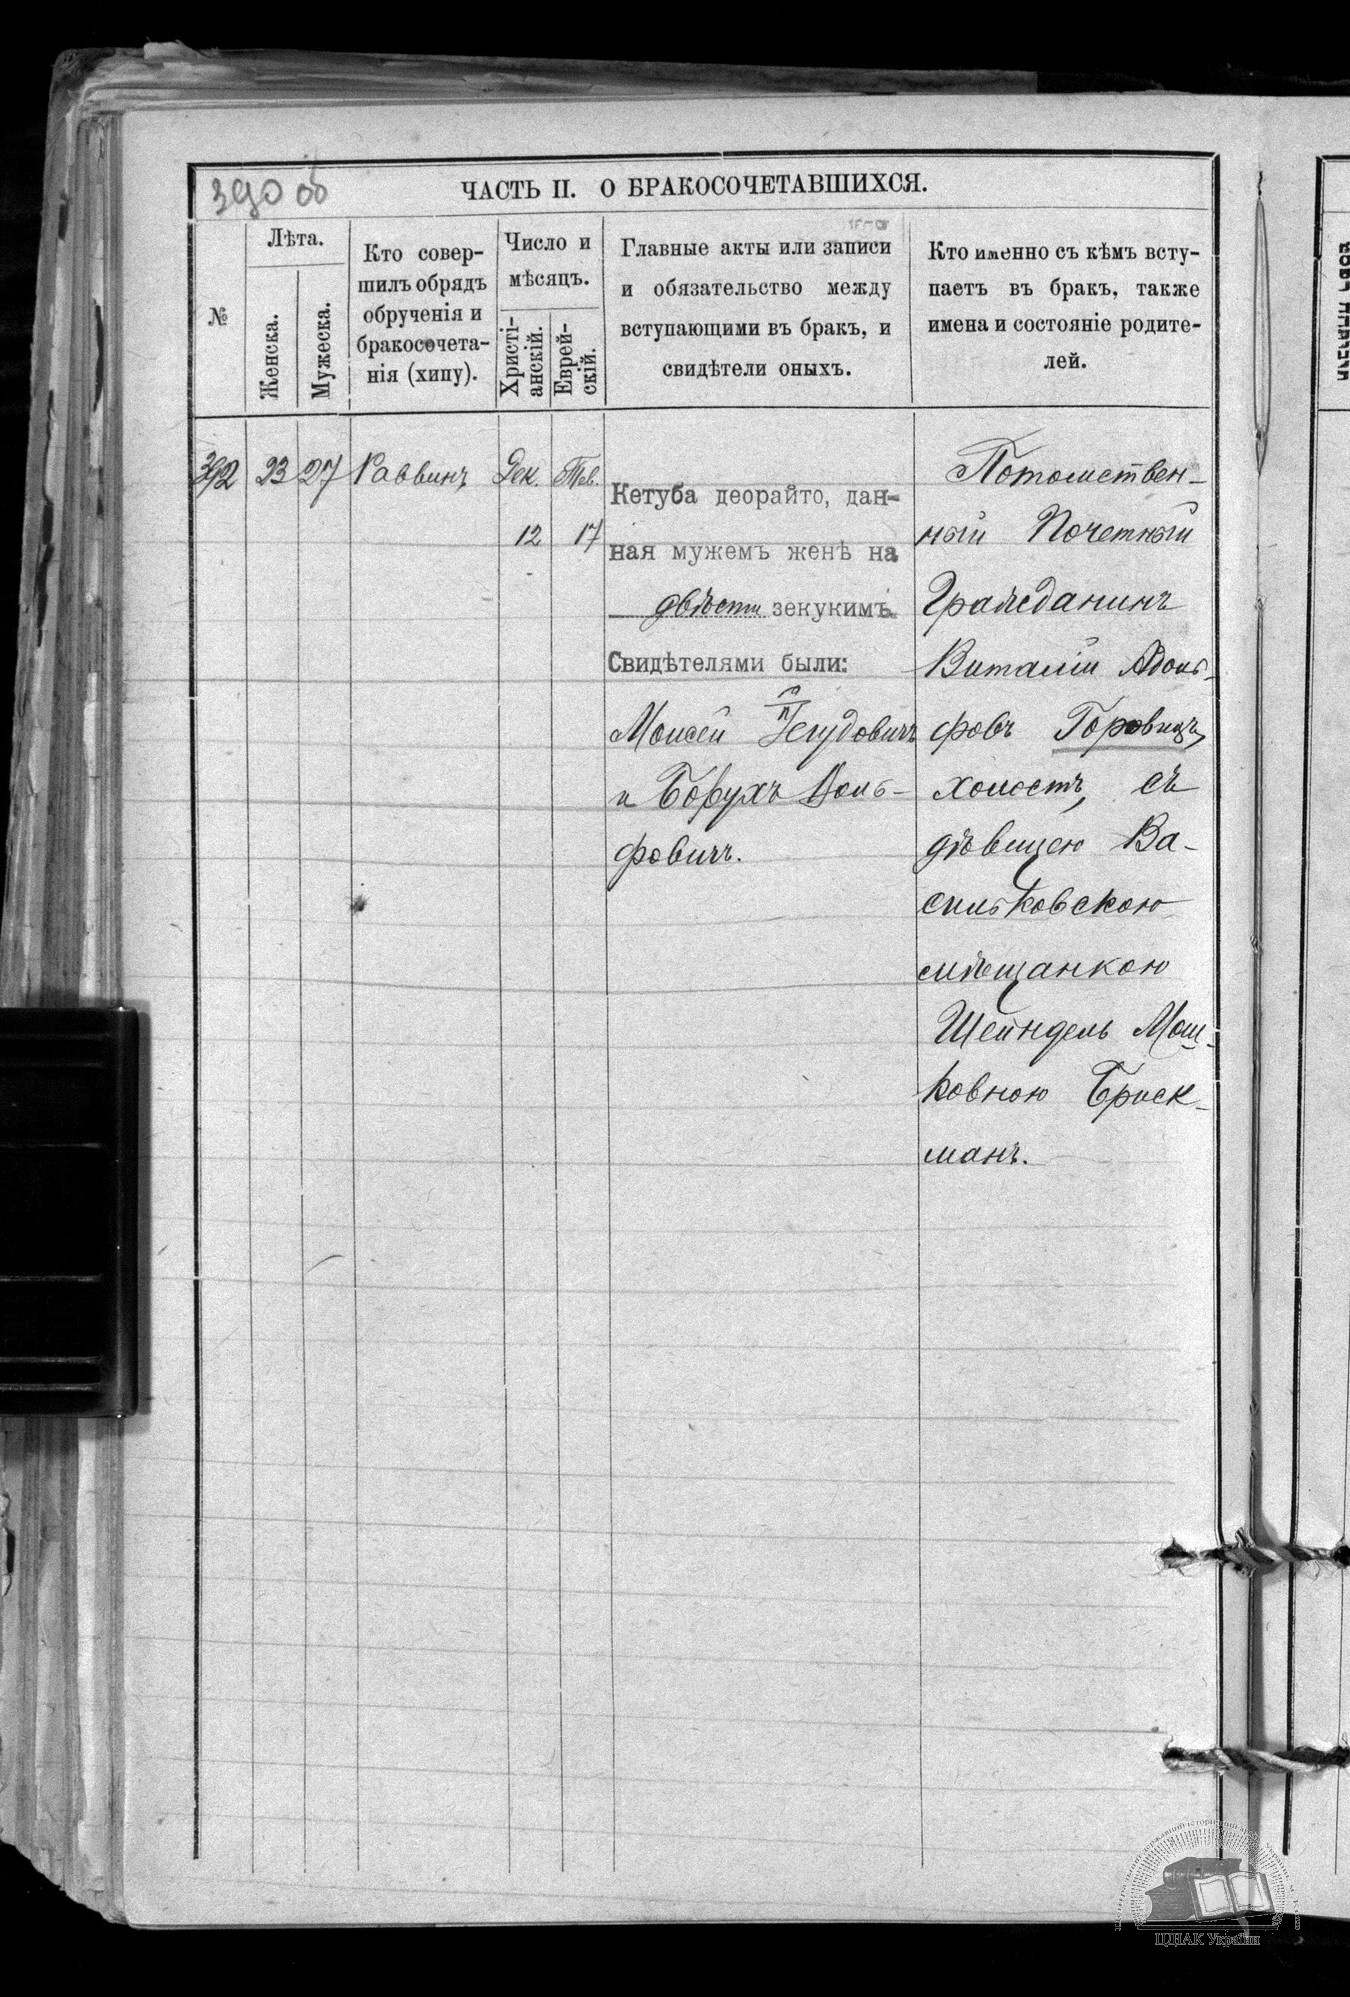 390 об
ЧАСТЬ II. О БРАКОСОЧЕТАВШИХСЯ.
№
Лѣта.
Женска.
Мужеска.
Кто совер-
шилъ обрядъ
обрученія и
бракосочета-
нія (хипу).
Число и
мѣсяцъ.
Христі-
анскій.
Еврей-
скій.
Главные акты или записи
и обязательство между
вступающими въ бракъ, и
свидѣтели оныхъ.
Кто именно съ кѣмъ всту-
паетъ въ бракъ, также
имена и состояніе родите-
лей.
392 23 27 Раввинъ Дек. Тев.
12 17
Кетуба деорайто, дан-
ная мужемъ женѣ на
двѣсти зекукимъ
Свидѣтелями были:
Моисей Іегудовичъ
и Борухъ Воль-
фовичъ.
Потомствен-
ный Почетный
Гражданинъ
Виталій Адоль-
фовъ Горовицъ,
холостъ, съ
дѣвицею Ва-
сильковскою
мѣщанкою
Шейндель Мош-
ковною Бриск-
манъ.
ЦДІАК України